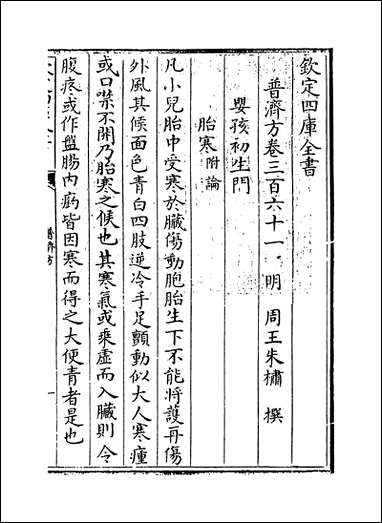 欽定四庫全書
普濟方卷三百六十一　明　周王朱橚　撰
嬰孩初生門
胎寒附論
凡小兒胎中受寒於臟傷動胞胎生下不能將護再傷
外風其候面色青白四肢逆冷手足顫動似大人寒瘧
或口噤不開乃胎寒之候也其寒氣或乘虛而入臟則令
腹疼或作盤腸內痛皆因寒而得之大便青者是也
普濟方
一